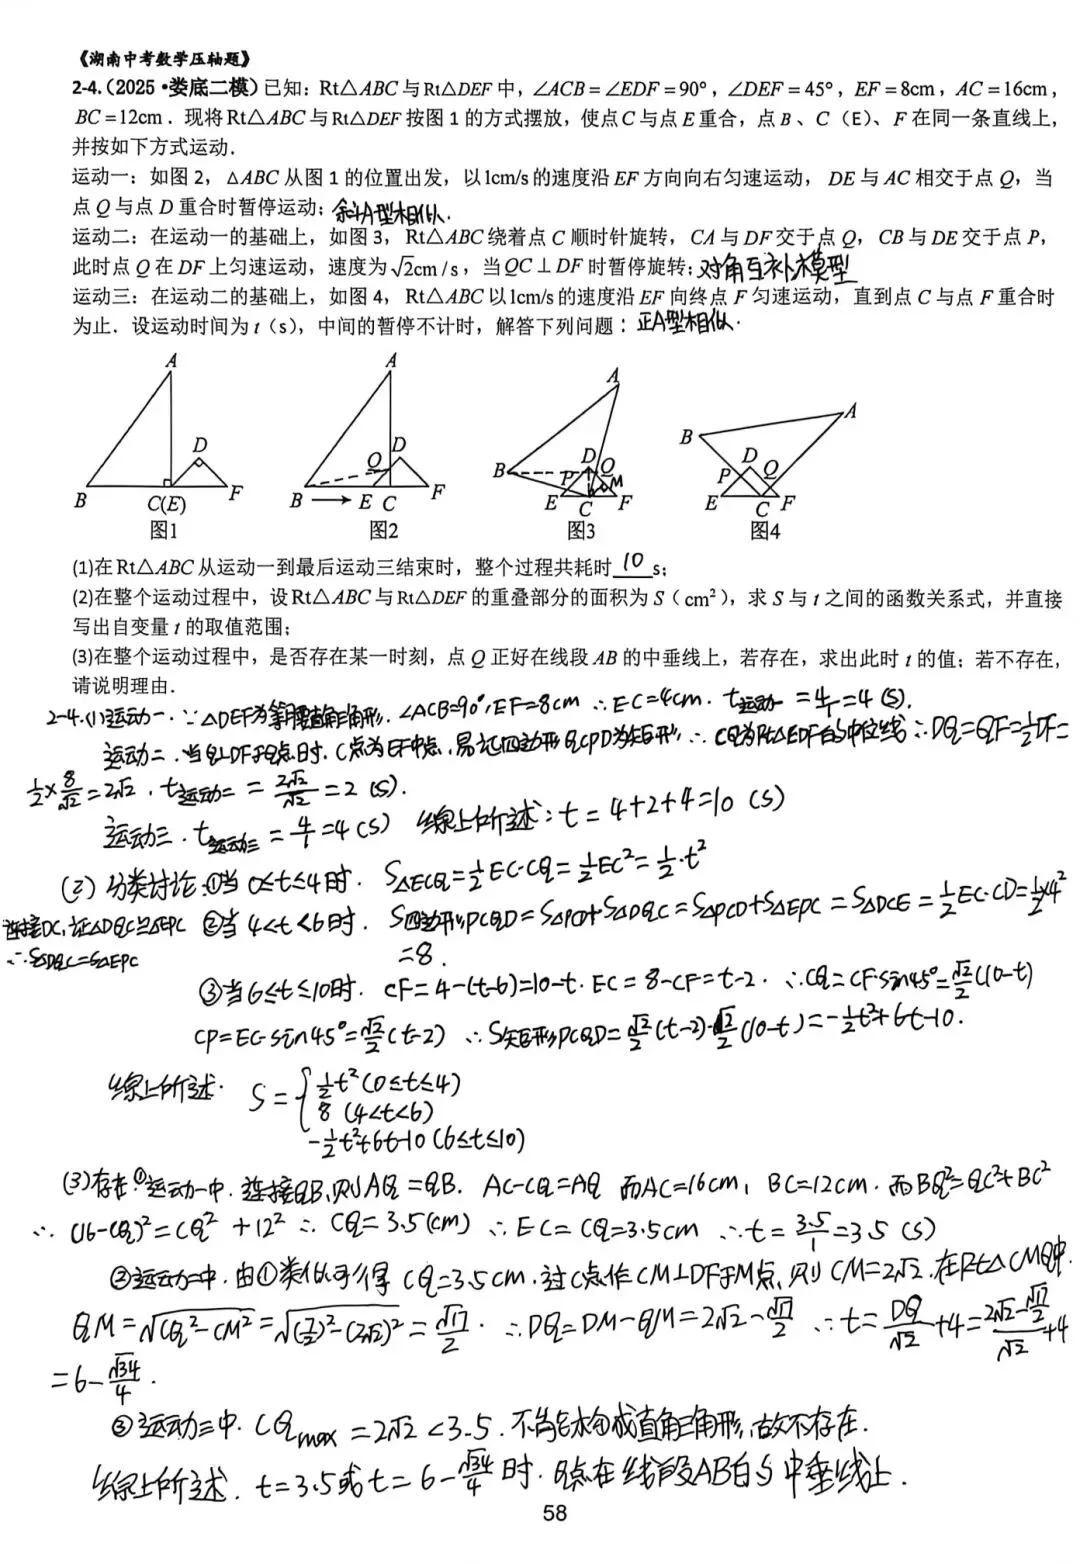 《湖南中考数学压轴题》
2-4.(2025·娄底二模)已知：Rt△ABC与Rt△DEF中，∠ACB=∠EDF=90°，∠DEF=45°，EF=8cm，AC=16cm，
BC=12cm．现将Rt△ABC与Rt△DEF按图1的方式摆放，使点C与点E重合，点B、C（E）、F在同一条直线上，
并按如下方式运动．
运动一：如图2，△ABC从图1的位置出发，以1cm/s的速度沿EF方向向右匀速运动，DE与AC相交于点Q，当
点Q与点D重合时暂停运动；斜A型相似.
运动二：在运动一的基础上，如图3，Rt△ABC绕着点C顺时针旋转，CA与DF交于点Q，CB与DE交于点P，
此时点Q在DF上匀速运动，速度为√2cm/s，当QC⊥DF时暂停旋转；对角互补模型
运动三：在运动二的基础上，如图4，Rt△ABC以1cm/s的速度沿EF向终点F匀速运动，直到点C与点F重合时
为止．设运动时间为t（s），中间的暂停不计时，解答下列问题：正A型相似.
A
B
C(E)
D
F
图1
A
B
Q
D
E
C
F
图2
A
B
P
D
Q
M
E
C
F
图3
A
B
P
D
Q
E
C
F
图4
(1)在Rt△ABC从运动一到最后运动三结束时，整个过程共耗时10s；
(2)在整个运动过程中，设Rt△ABC与Rt△DEF的重叠部分的面积为S（cm²），求S与t之间的函数关系式，并直接
写出自变量t的取值范围；
(3)在整个运动过程中，是否存在某一时刻，点Q正好在线段AB的中垂线上，若存在，求出此时t的值；若不存在，
请说明理由．
2-4.(1)运动一.∵△DEF为等腰直角三角形.∠ACB=90°,EF=8cm ∴EC=4cm. t运动一=4/1=4(s).
运动二.当CQ⊥DF于Q点时.C点为EF中点.易证四边形QCPD为矩形∴CQ为Rt△EDF的中位线∴DQ=QF=½DF=
½×8/√2=2√2. t运动二=2√2/√2=2(s).
运动三. t运动三=4/1=4(s) 综上所述：t=4+2+4=10(s)
(2)分类讨论:①当0≤t≤4时. S△ECQ=½EC·CQ=½EC²=½·t²
连接DC,证△DQC≌△EPC ②当4<t<6时. S四边形PCQD=S△PCD+S△DQC=S△PCD+S△EPC=S△DCE=½EC·CD=½×4²
∴S△DQC=S△EPC =8.
③当6≤t≤10时. CF=4-(t-6)=10-t. EC=8-CF=t-2. ∴CQ=CF·sin45°=√2/2(10-t)
CP=EC·sin45°=√2/2(t-2) ∴S矩形PCQD=√2/2(t-2)·√2/2(10-t)=-½t²+6t-10.
综上所述. S={½t²(0≤t≤4)
8(4<t<6)
-½t²+6t-10(6≤t≤10)
(3)存在:①运动一中.连接QB,则AQ=QB. AC-CQ=AQ 而AC=16cm, BC=12cm.而BQ²=QC²+BC²
∴(16-CQ)²=CQ²+12² ∴CQ=3.5(cm) ∴EC=CQ=3.5cm ∴t=3.5/1=3.5(s)
②运动二中.由①类似可得CQ=3.5cm.过C点作CM⊥DF于M点,则CM=2√2.在Rt△CMQ中.
QM=√(CQ²-CM²)=√((7/2)²-(2√2)²)=√17/2. ∴DQ=DM-QM=2√2-√17/2 ∴t=DQ/√2+4=(2√2-√17/2)/√2+4
=6-√34/4.
③运动三中.CQmax=2√2<3.5.不能构成直角三角形,故不存在.
综上所述. t=3.5或t=6-√34/4时.Q点在线段AB的中垂线上.
58